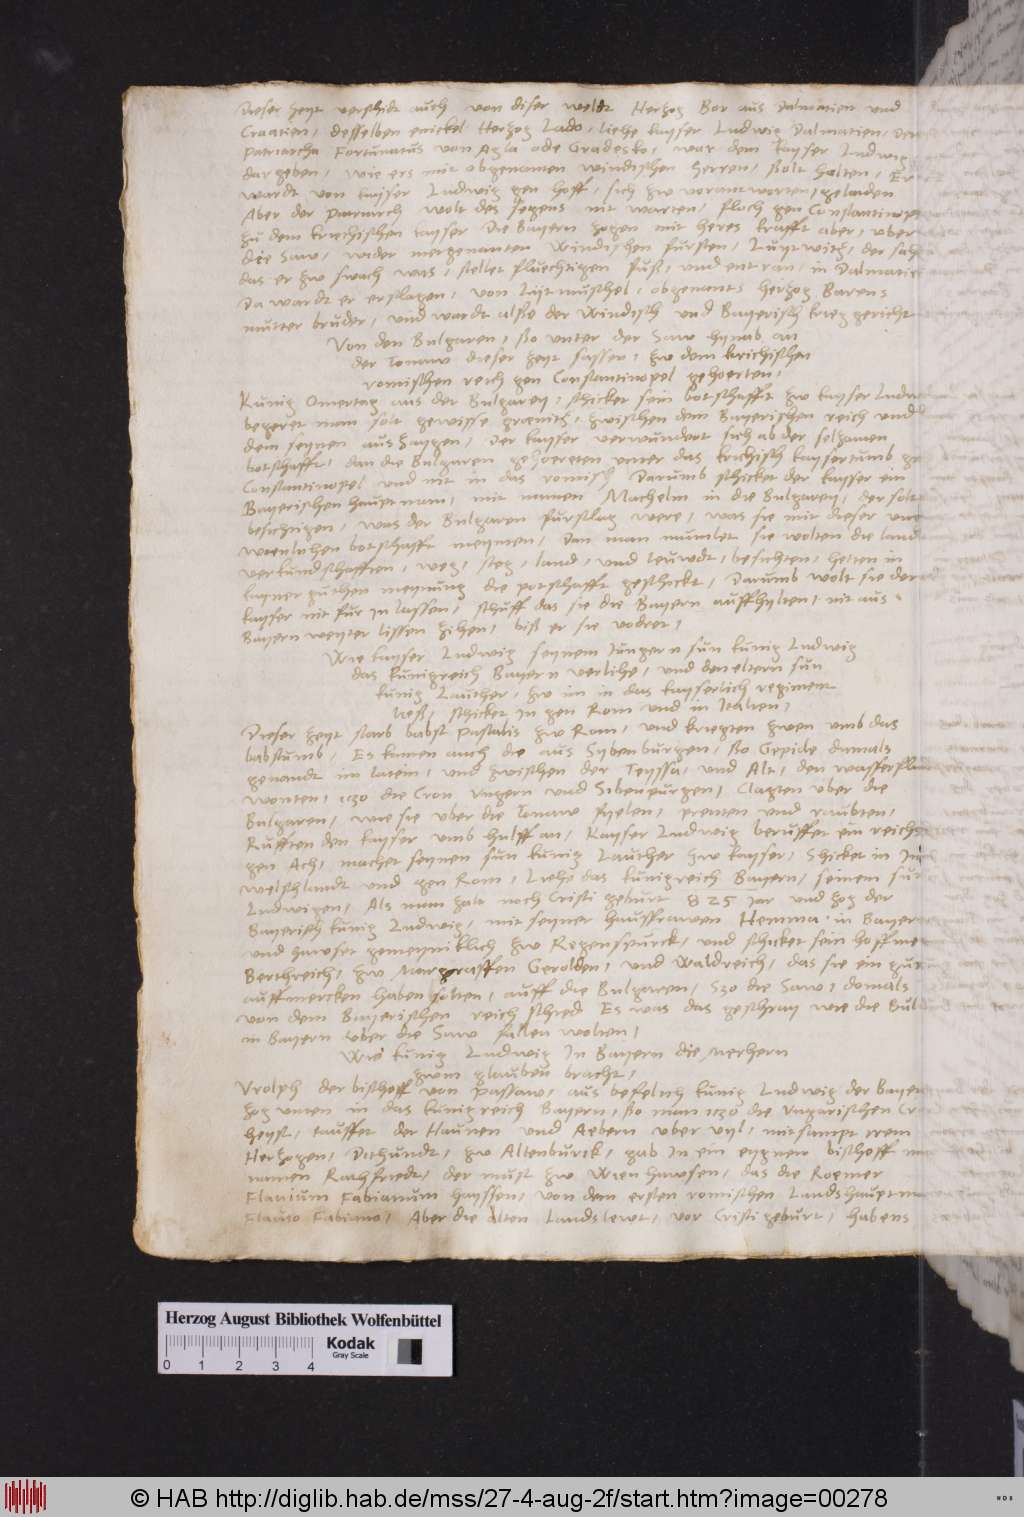 Dieser zeyt verschidt auch von diser weldt Herzog Bor aus Dalmatien und
Craatien, desselben enickel Herzog Lado, liehe kayser Ludwig Dalmatien, Der
Patriarcha Fortunatus von Agla ode Gradesko, war dem kayser Ludwig
dar geben, wie ers mit obgenanten windischen herren, ßolt halten, Er
wardt von kayser Ludwig gen hoff, sich zw vorantworten, geladen
Aber der Patriarch wolt des segens nit warten, floch gen Constantinopel
zu dem kriechischen kayser Die Bayern zogen mit heres krafft aber, uber
die Saw, wider mergenanten Windischen fursten, Luytwith, der sahe
das er zw swach was, stellet fluechtigen fuß, und entran, in Dalmatien
Da wardt er erslagen, von Lijtmuschel, obgenants herzog Barens
mutter bruder, und wardt alsße der Windisch und Bayerisch krieg gericht
Von den Bulgaren, ßo unter der Saw hynab an
der Tonaw dieser zeyt sassen, zw dem krichischen
romischen reich gen Constantinopel gehoerten,
Kunig Omertag aus der Bulgarey, schicket sein botschafft zw kayser Ludwig
begeret man solt gewisse graenitz, zwischen dem Bayerischen reich und
dem seynen auszaygen, Der kayser verwundert sich ab der selzamen
botschafft, dan die Bulgaren gehoereten unter das krichisch kaysertumb gen
Constantinopel und nit in das romisch Darumb schicket der kayser ein
Bayerischen hauptman, mit namen Machelm in die Bulgarey, der solt
besichtigen, was der Bulgaren furslag were, was sie mit dieser
botschafft meynten, Dan man mumlet sie wolten die land
verkundschafften, weg, steg, land, und leuwdt, besichten, hetten in
kayner guthen meynung die potschafft geschickt, Darumb wolt sie der
kayser nit fur in lassen, schuff das sie die Bayern auffhylten, nit aus
Bayern weyter lissen zihen, biß er sie vodret,
Wie kayser Ludwig seynem Jungern sun kunig Ludwig
das kunigreich Bayern verlihe, und den eltern sun
kunig Lauther, zw im in das kayserlich regiment
ließ, schicket in gen Rom und in Italien,
Dieser zeyt starb babst Paschalis zw Rom, und kriegten zwen umb das
babstumb, Es kamen auch die aus Sybenburgen, ßo Gepide damals
genandt im latein, und zwischen der Teyssa, und Alt, den wasserflussen
wonten, iczo die Cron ungern und Sibenpurgen, Clagten uber die
Bulgaren, wie sie uber die Tonaw fyelen, prenten und raubten,
Rufften den kayser umb hulff an, Kayser Ludwig beruffet ein reichs
gen Ach, machet seynen sun kunig Lauther zw kayser, Schicket in In
welschlandt und gen Rom, Liehe das kunigreich Bayern, seinem sun
Ludwigen, Als man zalt nach Cristi geburt 825 Jar und zog der
Bayerisch kunig Ludwig, mit seyner hausfrawen Hemma in Bayern
und hawset gemeyniklich zw Regenspurck, und schicket sein hoffme
Berthreich, zw Marggraffen Gerolden, und Waldreich, das sie ein gut
auffmercken haben solten, auff die Bulgaren, Szo die Saw, domals
von dem Bayerischen reich schied Es was das geschray wie die Bul
in Bayern uber die Saw fallen wolten,
Wie kunig Ludwig In Bayern die Merhern
zwm glauben bracht,
Vrolph der bischoff von Passaw, aus befelich kunig Ludwig der Bayern
zog unten in das kunigreich Bayern, ßo man iczo die Ungarischen Cron
heyst, tauffet der Haunen und Aebern uber vyl, mitsampt irem
Herzogen, Dithundt, zw Altenburck, gab In ein eygnen bischoff mit
namen Rathfriedt, der must zw Wien hawsen, das die Roemer
Flauium Fabianum hayssen, von dem ersten romischen Landshauptman
Flauio Fabiano, Aber die alten Landslewt, vor Cristi geburt, habens
Herzog August Bibliothek Wolfenbüttel
Kodak
Gray Scale
0 1 2 3 4
© HAB http://diglib.hab.de/mss/27-4-aug-2f/start.htm?image=00278